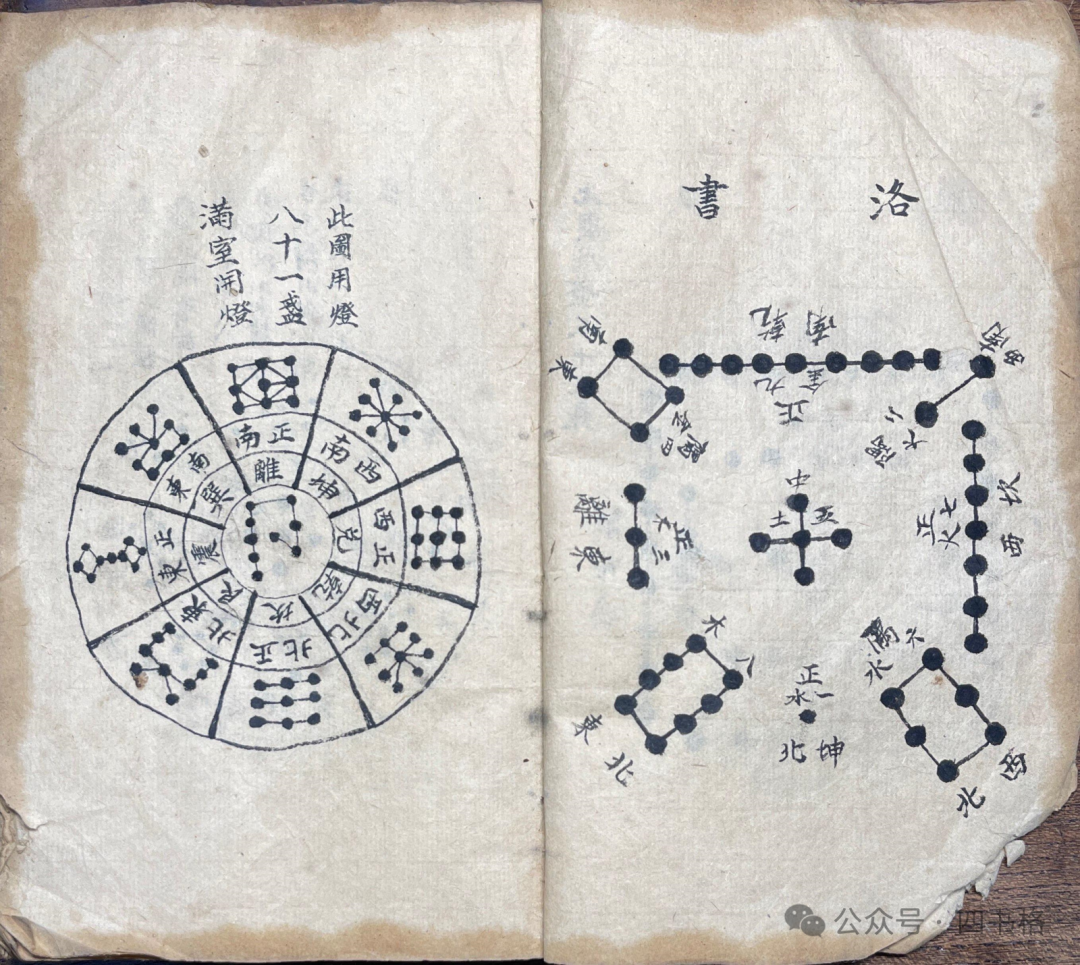 洛書
南乾
正九金
西南
隅二火
坎西
正七火
中
五土
東南
隅四
離東
正三木
隅六水
西北
八木
東北
正一水
坤北
此圖用燈
八十一盞
滿室開燈
正南
離
西南
坤
正西
兌
西北
乾
正北
坎
東北
艮
正東
震
東南
巽
公众号·四书格